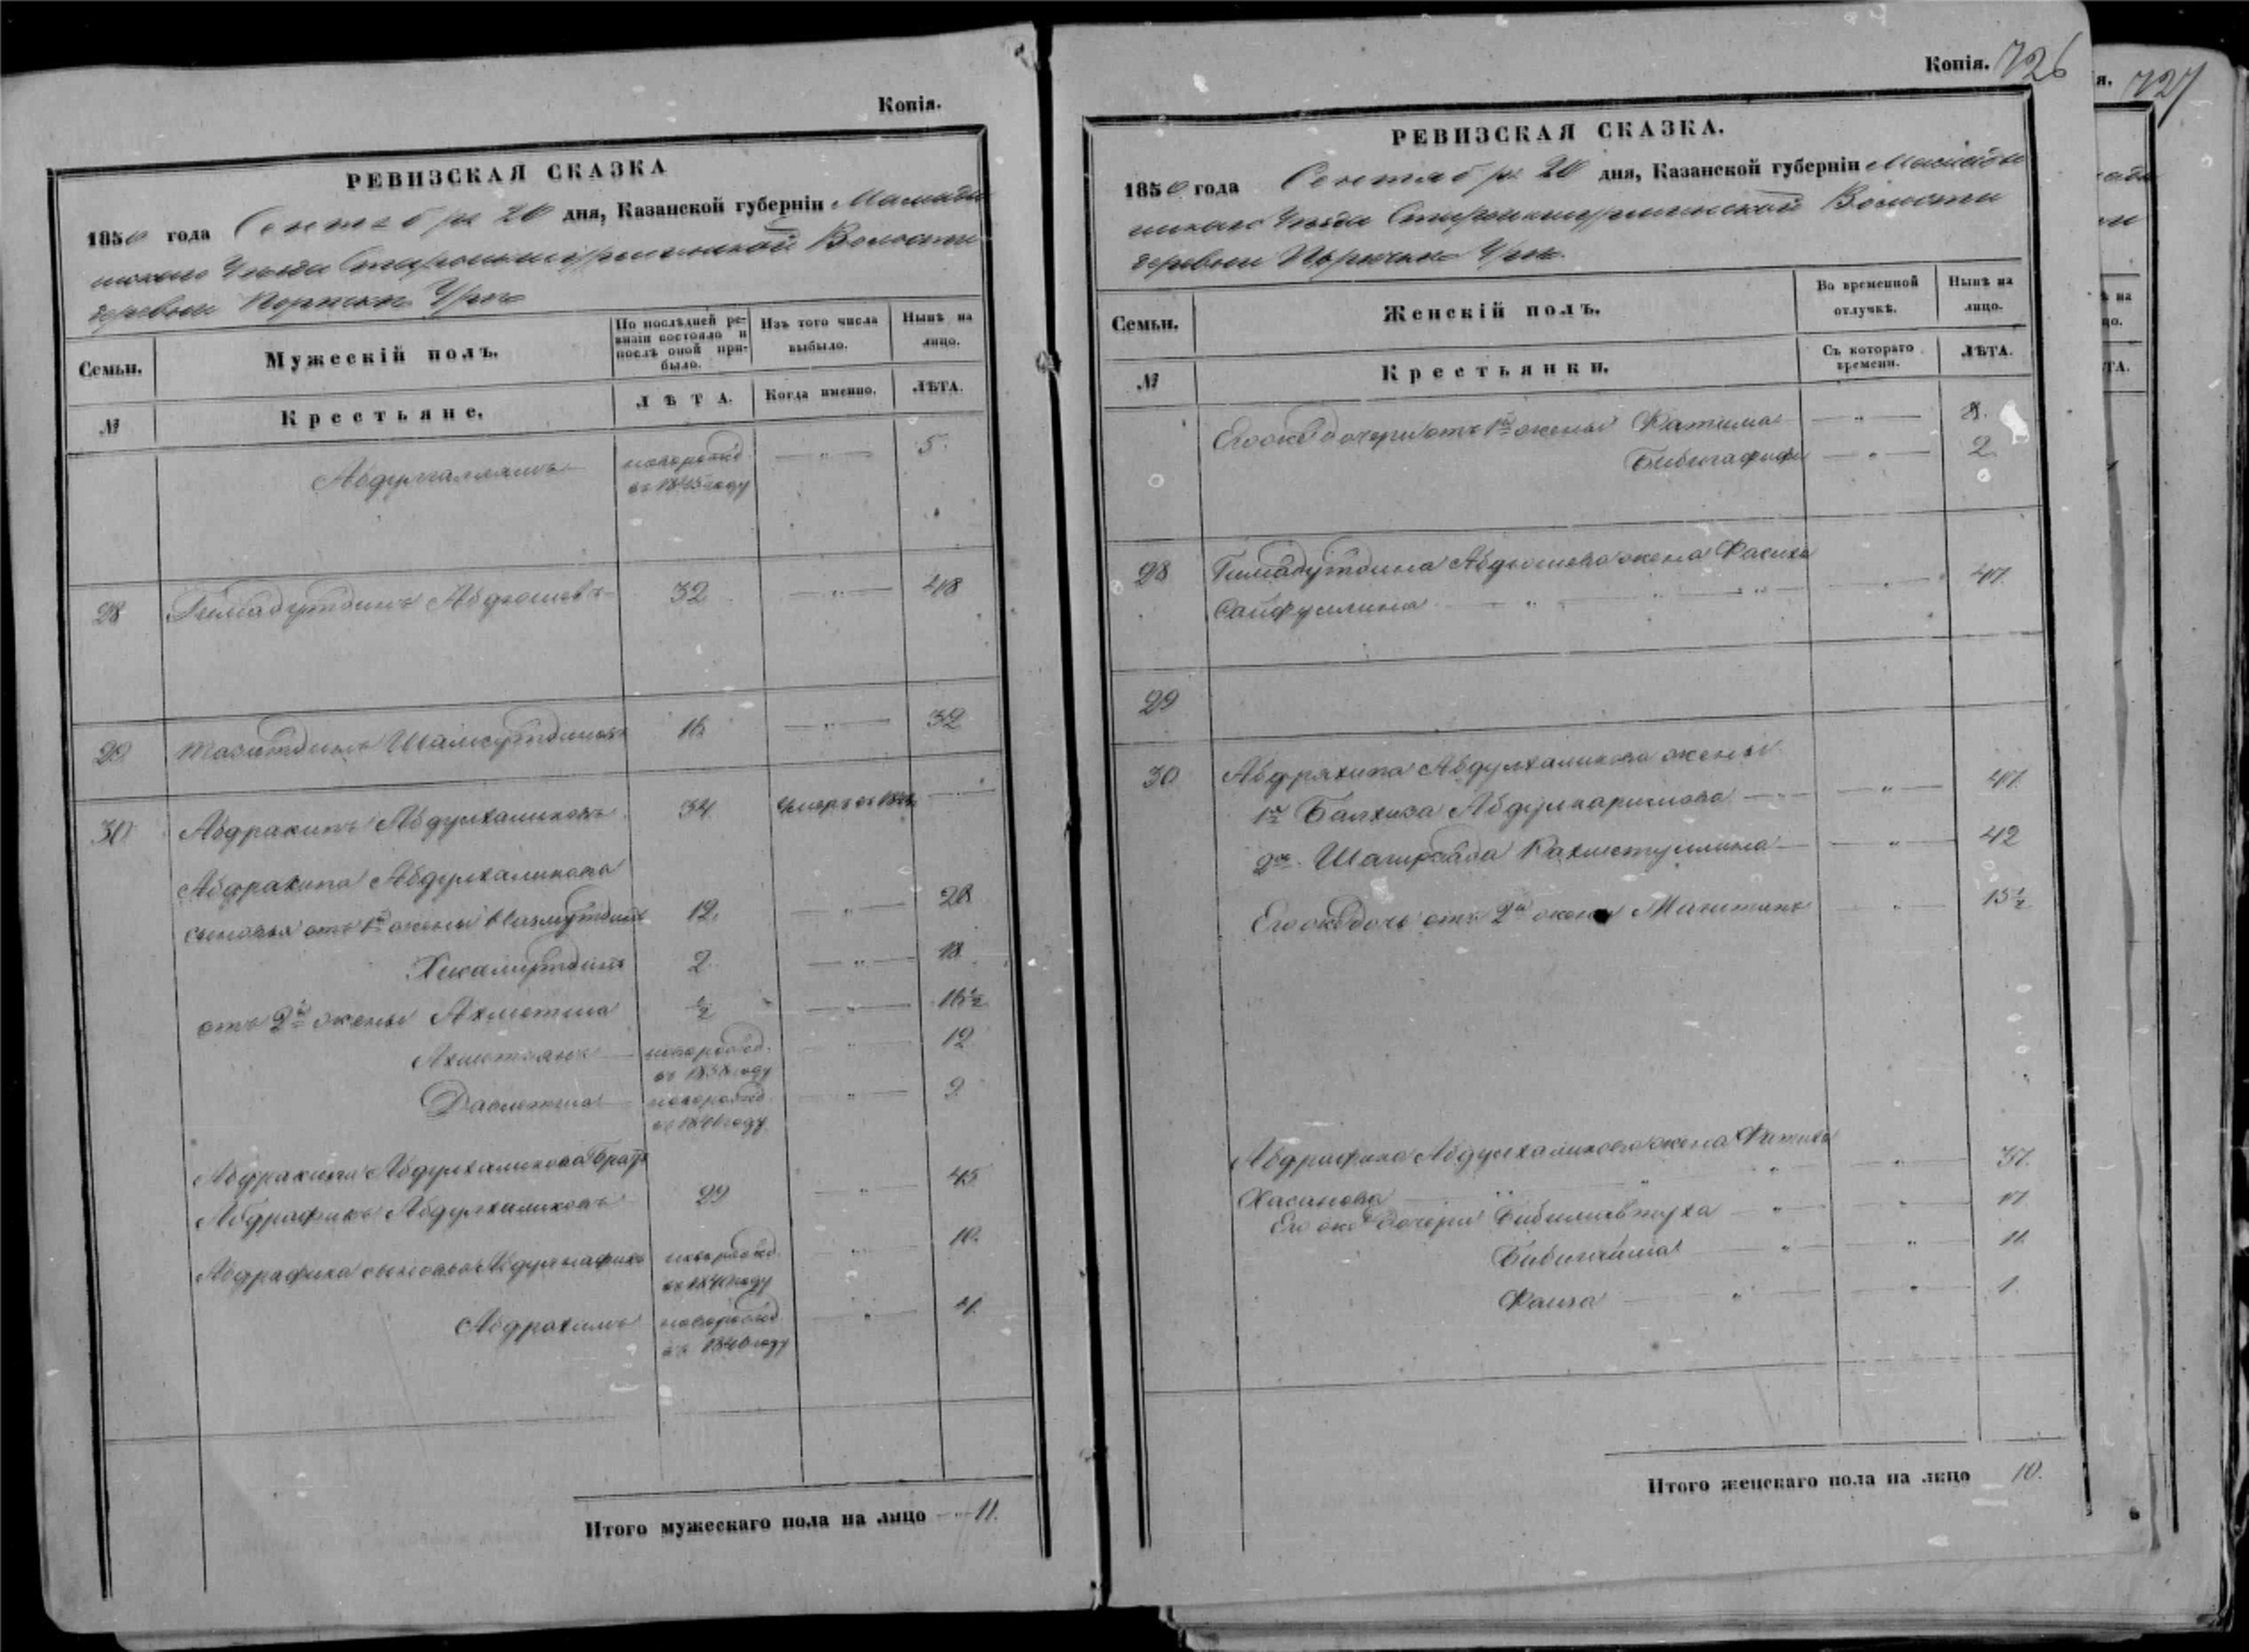 Копія.
РЕВИЗСКАЯ СКАЗКА
1850 года Сентября 20 дня, Казанской губерніи Мамады
шскаго Уезда Волости
деревни
Семьи.
Мужескій полъ.
По послѣдней ре-
визіи состояло и
послѣ оной при-
было.
Изъ того числа
выбыло.
Нынѣ на
лицо.
№
Крестьяне.
ЛѢТА.
Когда именно.
ЛѢТА.
новорожд. — " — 5.
въ 1845 году
28 Гимадутдинъ Абдюшевъ 32 — " — 48
29 Шамсутдиновъ 16 — " — 32
30 Абдракипъ Абдулхаликовъ 34 умеръ въ —
Абдракипа Абдулхаликова
сыновья отъ 1й жены 12. — " — 28
Хисамутдинъ 2. — " — 18
отъ 2й жены Ахметша ½ — " — 16½
Ахметзянъ новорожд. — " — 12
въ 1838 году
Давлетша новорожд. — " — 9
въ 1841 году
Абдракипа Абдулхаликова братъ
Абдрафикъ Абдулхаликовъ 29 — " — 45
Абдрафика сыновья Абдулнафикъ новорожд. — " — 10.
въ 1840 году
Абдрахимъ новорожд. — " — 4.
въ 1846 году
Итого мужескаго пола на лицо — 11.
Копія. 726
РЕВИЗСКАЯ СКАЗКА.
1850 года Сентября 20 дня, Казанской губерніи Мамады
шскаго Уезда Волости
деревни
Семьи.
Женскій полъ.
Во временной
отлучкѣ.
Нынѣ на
лицо.
№
Крестьянки.
Съ котораго
времени.
ЛѢТА.
Его же дочери отъ 1й жены Фатима — " — 8.
— " — 2
28 Гимадутдина Абдюшева жена Фасиха
Сайфуллина — " — 47.
29
30 Абдрахипа Абдулхаликова жены
1я Балхиза Абдулкаримова — " — 47.
2я Рахметуллина — " — 42
Его же дочь отъ 2й жены — " — 15½
Абдрафика Абдулхаликова жена
Хасанова — " — 37.
Его же дочери — " — 17
— " — 11
Фаиза — " — 1.
Итого женскаго пола на лицо 10.
я. 727